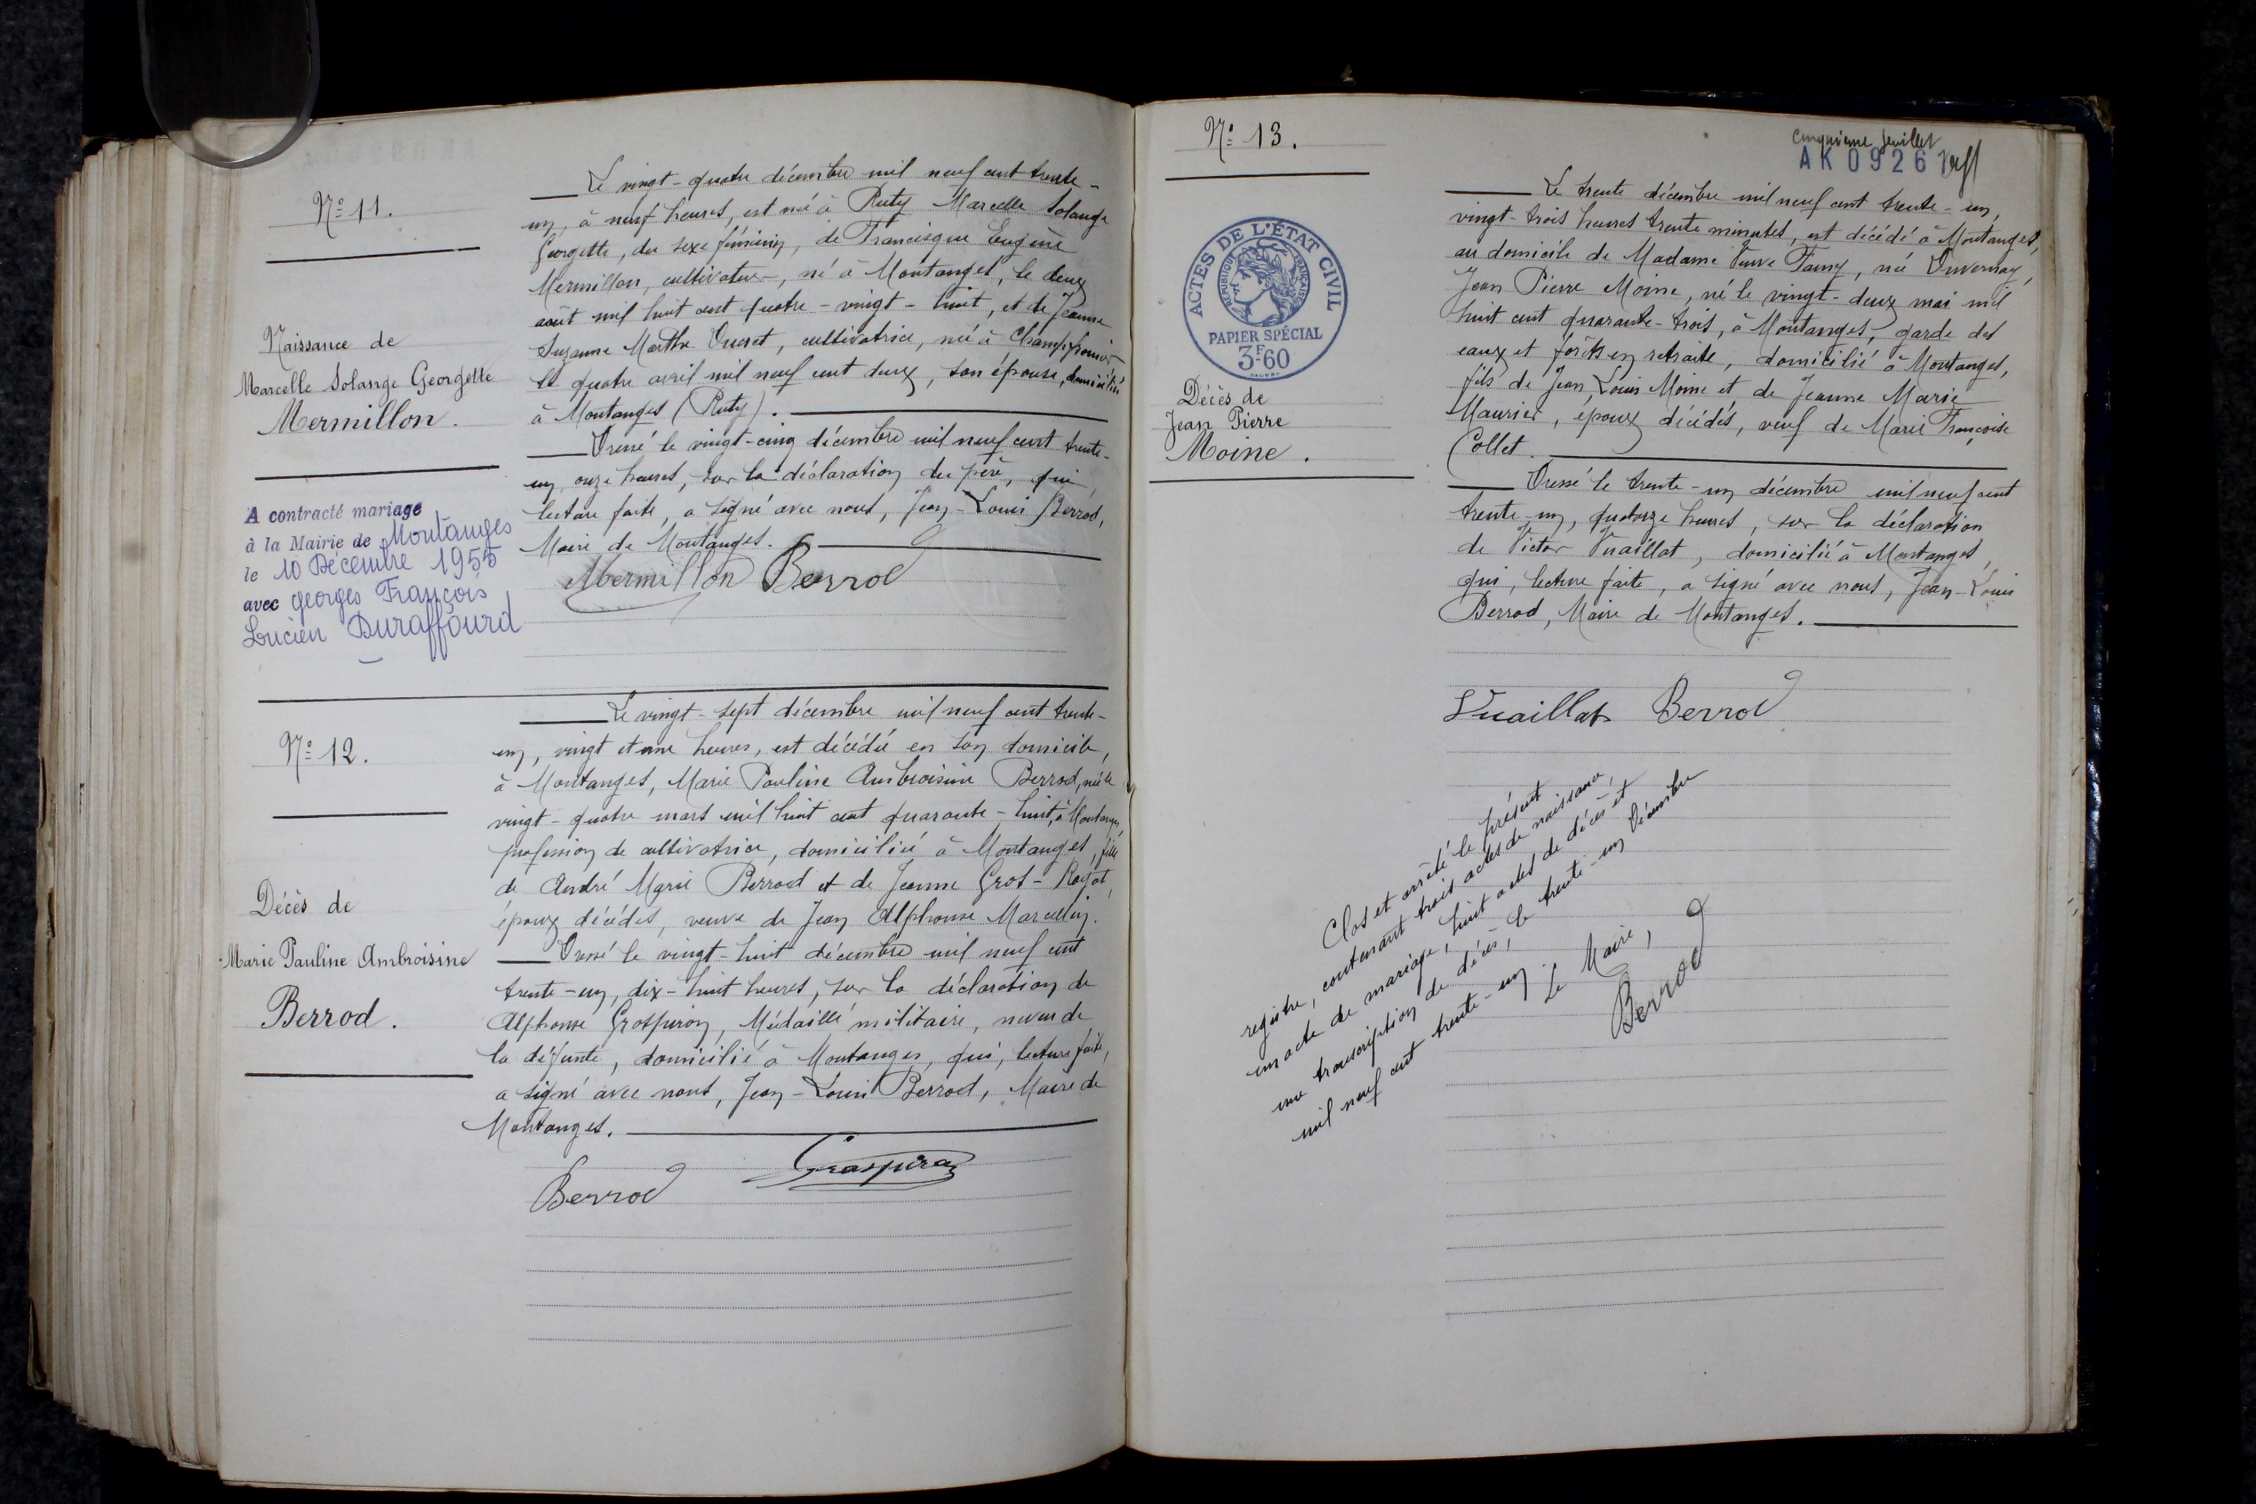 N° 11.
Naissance de
Marcelle Solange Georgette
Mermillon.
A contracté mariage
à la Mairie de Montanges
le 10 Décembre 1955
avec Georges François
Lucien Duraffourd
Le vingt-quatre décembre mil neuf cent trente-
un, à neuf heures, est née à Ruty Marcelle Solange
Georgette, du sexe féminin, de Francisque Eugène
Mermillon, cultivateur, né à Montanges, le deux
août mil huit cent quatre-vingt-huit, et de Jeanne
Suzanne Marthe Ducret, cultivatrice, née à Champfromier
le quatre avril mil neuf cent deux, son épouse, domiciliés
à Montanges (Ruty).
Dressé le vingt-cinq décembre mil neuf cent trente-
un, onze heures, sur la déclaration du père, qui,
lecture faite, a signé avec nous, Jean-Louis Berrod,
Maire de Montanges.
Mermillon Berrod
N° 12.
Décès de
Marie Pauline Ambroisine
Berrod.
Le vingt-sept décembre mil neuf cent trente-
un, vingt et une heures, est décédée en son domicile,
à Montanges, Marie Pauline Ambroisine Berrod, née le
vingt-quatre mars mil huit cent quarante-huit, à Montanges,
profession de cultivatrice, domiciliée à Montanges, fille
de André Marie Berrod et de Jeanne Gros-
époux décédés, veuve de Jean Alphonse Marcellin.
Dressé le vingt-huit décembre mil neuf cent
trente-un, dix-huit heures, sur la déclaration de
Alphonse Grospiron, Médaillé militaire, neveu de
la défunte, domicilié à Montanges, qui, lecture faite,
a signé avec nous, Jean-Louis Berrod, Maire de
Montanges.
Berrod Grospiron
N° 13.
cinquième feuillet
AK 0926
ACTES DE L'ÉTAT CIVIL
RÉPUBLIQUE FRANÇAISE
PAPIER SPÉCIAL
3F60
Décès de
Jean Pierre
Moine.
Le trente décembre mil neuf cent trente-un,
vingt-trois heures trente minutes, est décédé à Montanges,
au domicile de Madame Veuve Famy, née Duvernay,
Jean Pierre Moine, né le vingt-deux mai mil
huit cent quarante-trois, à Montanges, garde des
eaux et forêts en retraite, domicilié à Montanges,
fils de Jean Louis Moine et de Jeanne Marie
Maurier, époux décédés, veuf de Marie Françoise
Collet.
Dressé le trente-un décembre mil neuf cent
trente-un, quatorze heures, sur la déclaration
de Victor Vuaillat, domicilié à Montanges,
qui, lecture faite, a signé avec nous, Jean-Louis
Berrod, Maire de Montanges.
Vuaillat Berrod
Clos et arrêté le présent
registre, contenant trois actes de naissance,
un acte de mariage, huit actes de décès et
une transcription de décès, le trente-un Décembre
mil neuf cent trente-un.
Le Maire,
Berrod